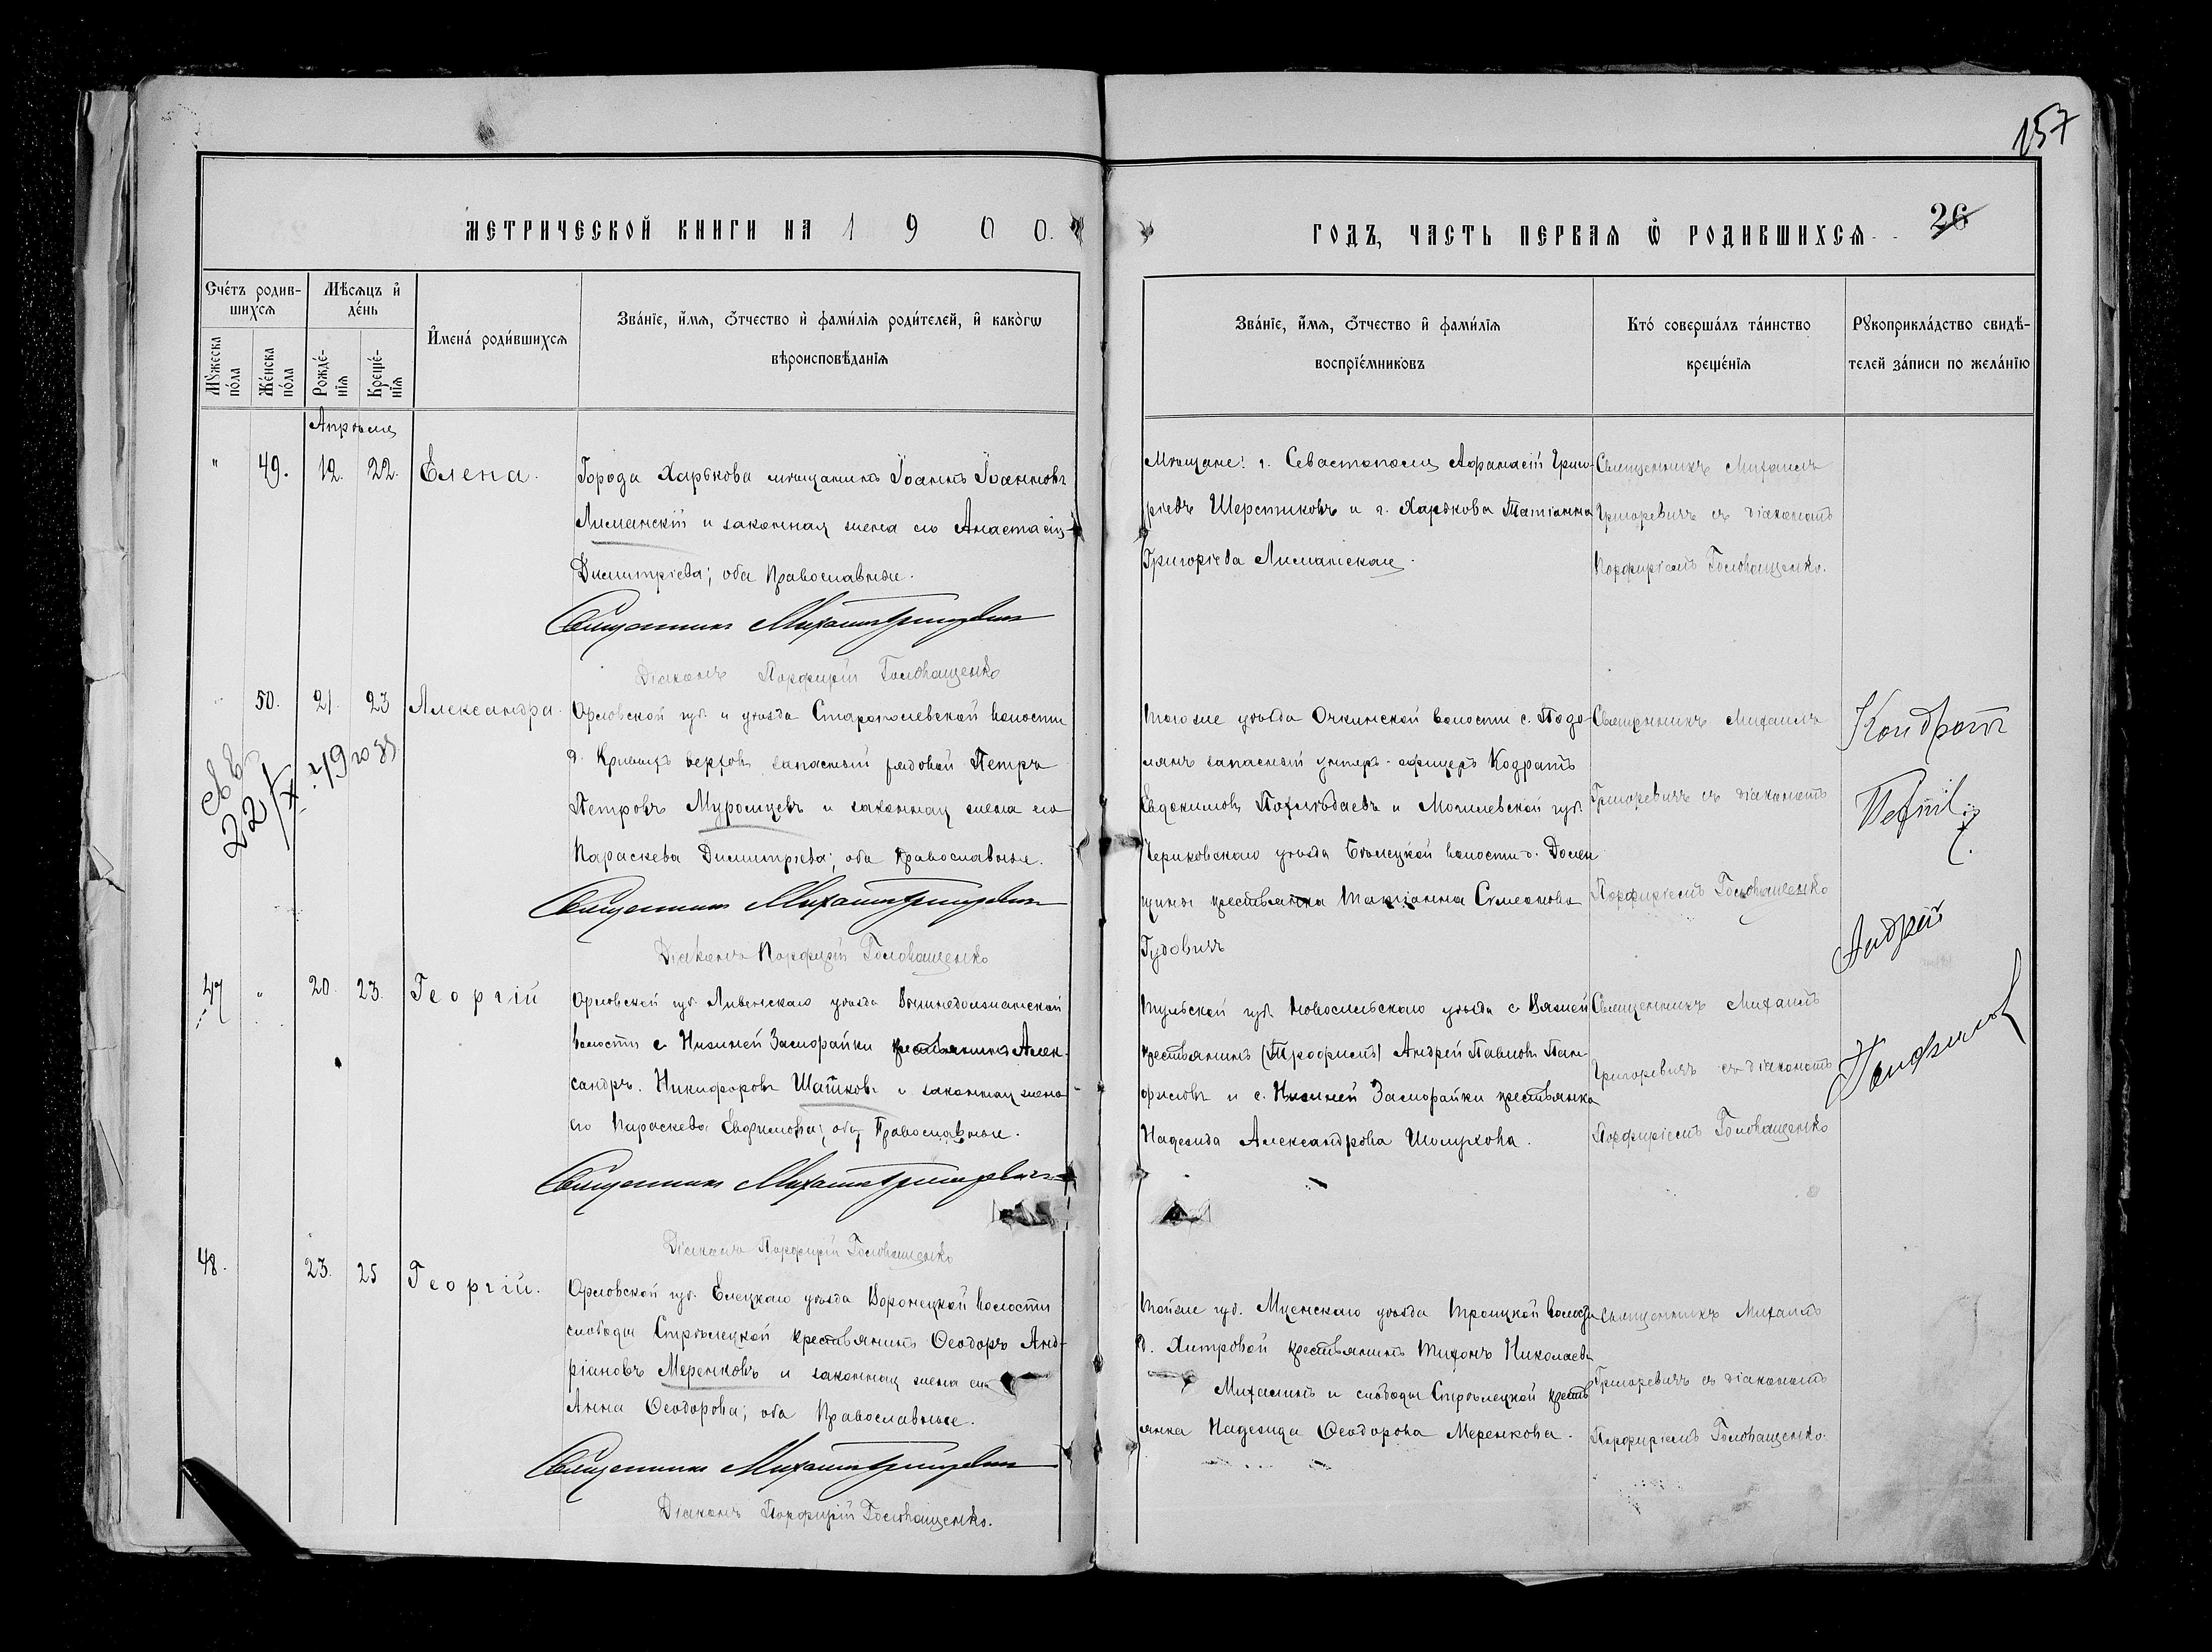 157
МЕТРИЧЕСКОЙ КНИГИ НА 1900.
ГОДЪ, ЧАСТЬ ПЕРВАЯ Ѡ РОДИВШИХСЯ
26
Сче́тъ родив-
шихсѧ
Мꙋжеска по́ла
Же́нска по́ла
Мѣсѧцъ и҆ де́нь
Рожде́-
нїѧ
Креще́-
нїѧ
И҆мена́ роди́вшихсѧ
Зва́нїе, и҆́мѧ, ѻ҆́тчество и҆ фами́лїѧ роди́телей, и҆ како́гѡ
вѣроисповѣ́данїѧ
Зва́нїе, и҆́мѧ, ѻ҆́тчество и҆ фами́лїѧ
воспрїе́мниковъ
Кто̀ соверша́лъ та́инство
креще́нїѧ
Рꙋкоприкла́дство свидѣ́-
телей за́писи по жела́нїю
Апрѣля
" 49. 12. 22. Елена.
Города Харькова мѣщанинъ Іоаннъ Іоанновъ
Лиманскій и законная жена его Анастасія
Димитріева; оба Православные.
Священникъ Михаилъ Григоревичъ
Діаконъ Порфирій Головащенко
Мѣщане: г. Севастополя Афанасій Григо-
ріевъ Шерстиковъ и г. Харькова Татіанна
Григоріева Лиманская.
Священникъ Михаилъ
Григоревичъ съ діакономъ
Порфиріемъ Головащенко.
50. 21. 23 Александра.
Орловской губ. и уѣзда Старополевской волости
д. Кривыхъ верховъ запасный рядовой Петръ
Петровъ Муромцевъ и законная жена его
Параскева Димитріева; оба Православные.
Священникъ Михаилъ Григоревичъ
Діаконъ Порфирій Головащенко
Того же уѣзда Очкинской волости с. Подо-
лянъ запасный унтеръ-офицеръ Кодратъ
Евдокимовъ и Могилевской губ.
Чериковскаго уѣзда волости д.
крестьянка Татіанна Симеонова
Гудовичъ
Священникъ Михаилъ
Григоревичъ съ діакономъ
Порфиріемъ Головащенко
Кондратъ
22/
47 " 20. 23. Георгій
Орловской губ. Ливенскаго уѣзда
волости с. Нижней Заморайки крестьянинъ Алек-
сандръ Никифоровъ Шатковъ и законная жена
его Параскева Евфимова; оба Православные.
Священникъ Михаилъ Григоревичъ
Діаконъ Порфирій Головащенко
Тульской губ. Новосильскаго уѣзда с. Вяжей
крестьянинъ (Трофимъ) Андрей Павловъ Пан-
филовъ и с. Нижней Заморайки крестьянка
Надежда Александрова Шолухова.
Священникъ Михаилъ
Григоревичъ съ діакономъ
Порфиріемъ Головащенко
Андрей
Панфилов
48. 23. 25 Георгій.
Орловской губ. Елецкаго уѣзда Воронецкой волости
слободы Стрѣлецкой крестьянинъ Ѳеодоръ Анд-
ріановъ Меренковъ и законная жена его
Анна Ѳеодорова; оба Православные.
Священникъ Михаилъ Григоревичъ
Діаконъ Порфирій Головащенко.
Той же губ. Мценскаго уѣзда Троицкой волости
д. Хитровой крестьянинъ Тихонъ Николаевъ
Михалинъ и слободы Стрѣлецкой кресть-
янка Надежда Ѳеодорова Меренкова.
Священникъ Михаилъ
Григоревичъ съ діакономъ
Порфиріемъ Головащенко.